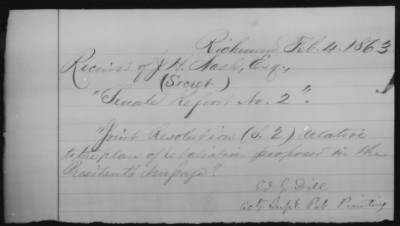 Richmond Feb. 4. 1863
Received of J. H. Nash, Esq.,
(Secret)
"Senate Report No. 2".
"Joint Resolution (S. 2) relative
to the plan of retaliation proposed in the
President's Message".
Ed. G. Dill
Actg Supt. Pub Printing